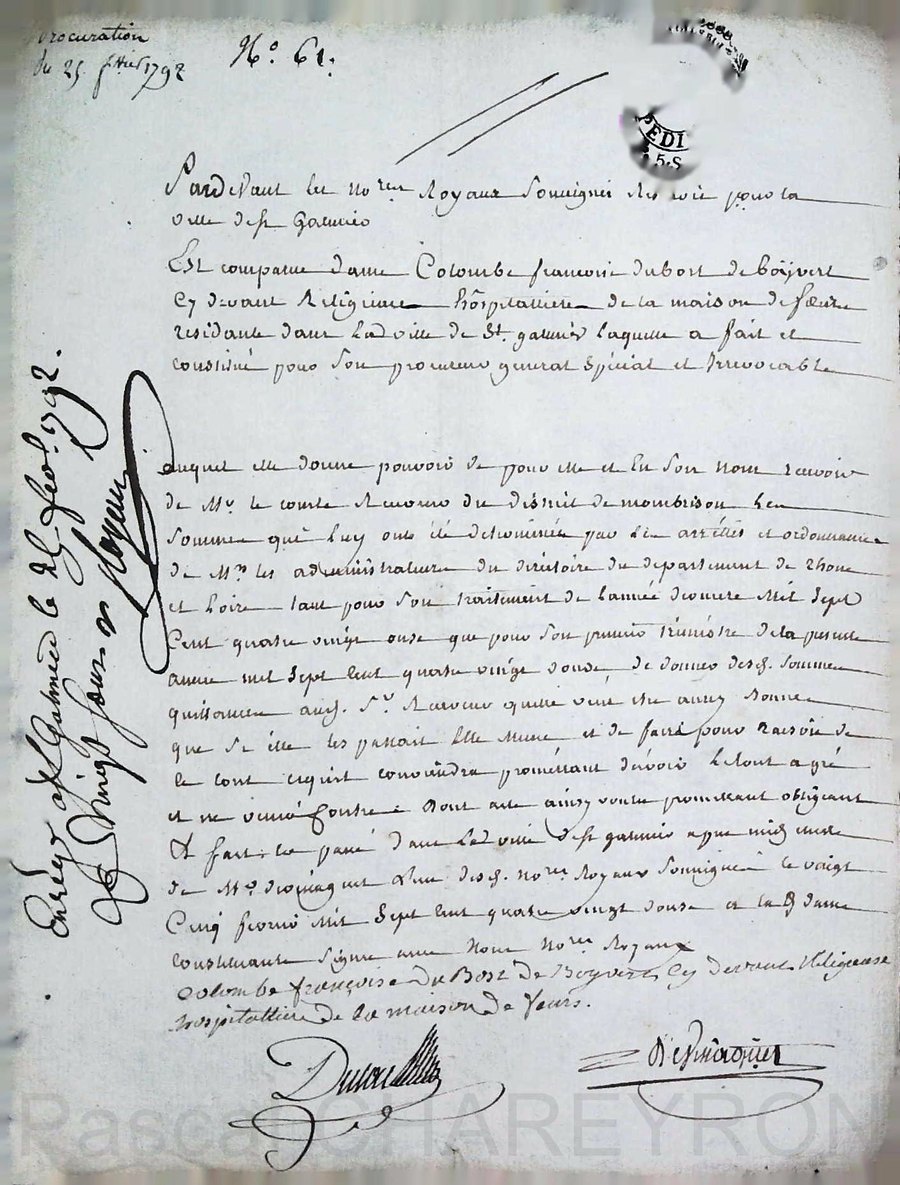 procuration
du 25 fevrier 1792
N°. 61.
PEDI
5.S
Pardevant les no.res Royaux Soussignés Residt pour la
ville de st Galmier
Est comparue dame Colombe francoise dubost de boÿvert
Cy devant Religieuse hôspitalliere de la maison de feurs
residante dans Lad. ville de St. galmier Laquelle a fait et
constitué pour son procureur general Special et Irrevocable
auquel elle donne pouvoir de pour elle et En Son nom recevoir
de Mr. le comte Receveur du district de monbrison Les
Sommes qui Luy onts été determinées par Les arrêttés et ordonnances
de Mrs. les administrateurs du directoire du departement de Rhone
et Loire tant pour Son traitement de Lannée derniere Mil Sept
Cent quatre vingt onze que pour Son premier trimestre de la presente
annee mil Sept Cent quatre vingt douze de donner desd. Sommes
quittances aud. Sr. Receveur quelle veut etre aussy bonnes
que Si elle les passait Elle meme et de faire pour raison de
ce tout cequil conviendra promettant davoir Letout agréé
et ne venir Contre Dont acte ainsy voulu promettant obligeant
fait et passé dans Lad. ville de st galmier apres midy
de Me. desmaquet Lun desd. no.res Royaux Soussignés le vingt
Cinq fevrier Mil Sept Cent quatre vingt douze et lad. dame
constituante Signé avec Nous No.res Royaux
Colombe françoise du Bost de Boyvert Cy devant Religieuse
hospitalliere de la maison de feurs.
Enrég. a st Galmier le 25 fevr. 1792.
R. vingt sous